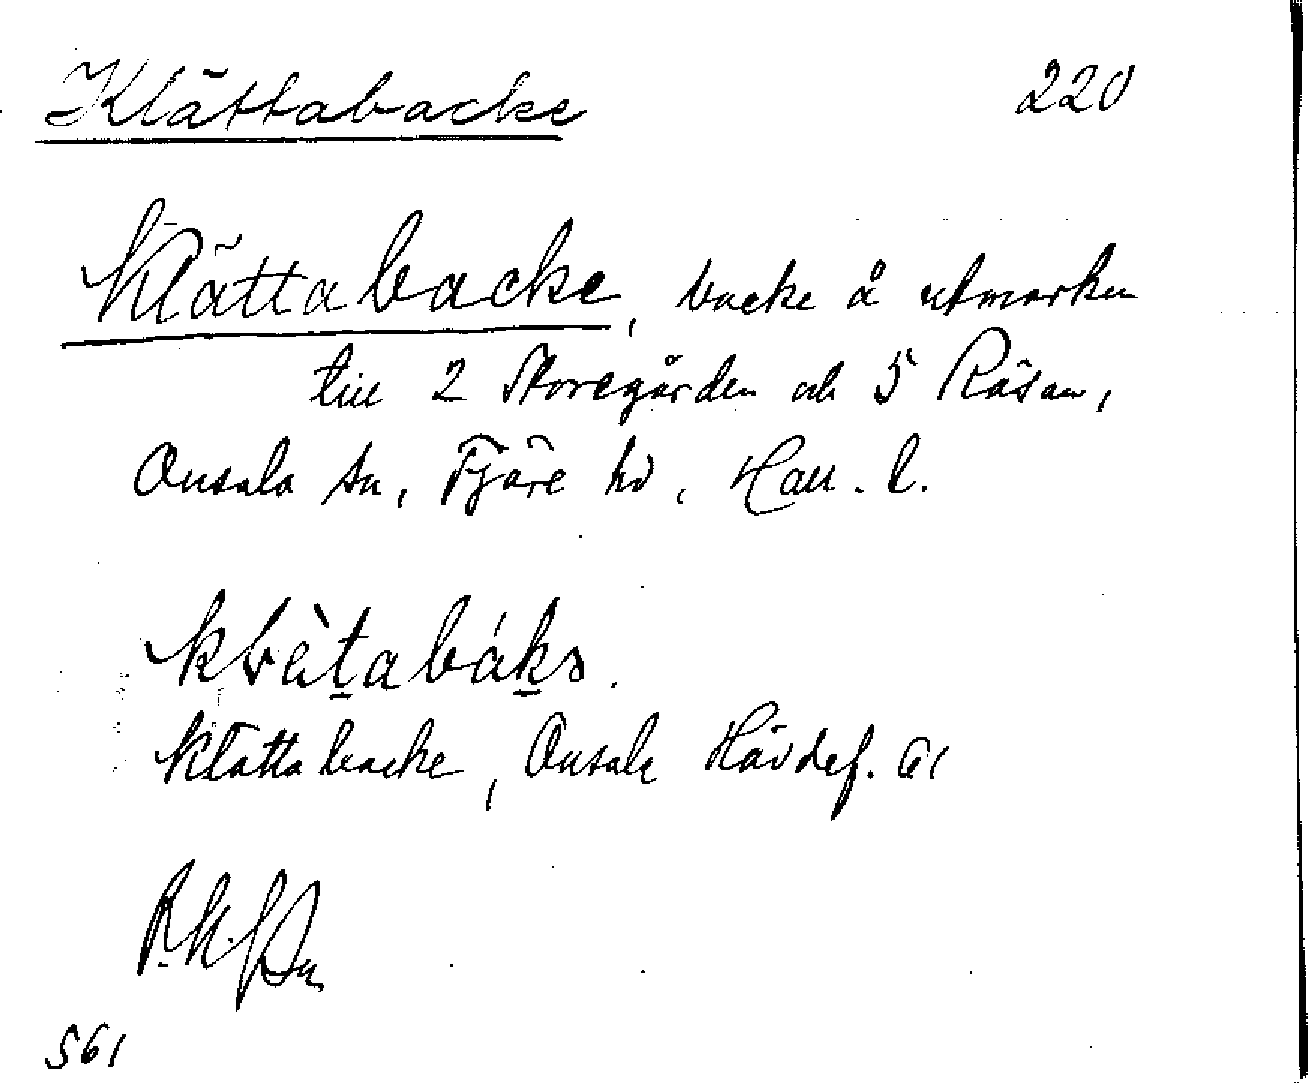 Klättabacke 220
Klättabacke, backe å utmarken
till 2 Storegården och 5 Råsan,
Onsala sn, Fjäre hd, Hall. l.
Klättabacke, Onsala Hävdef. 61
561